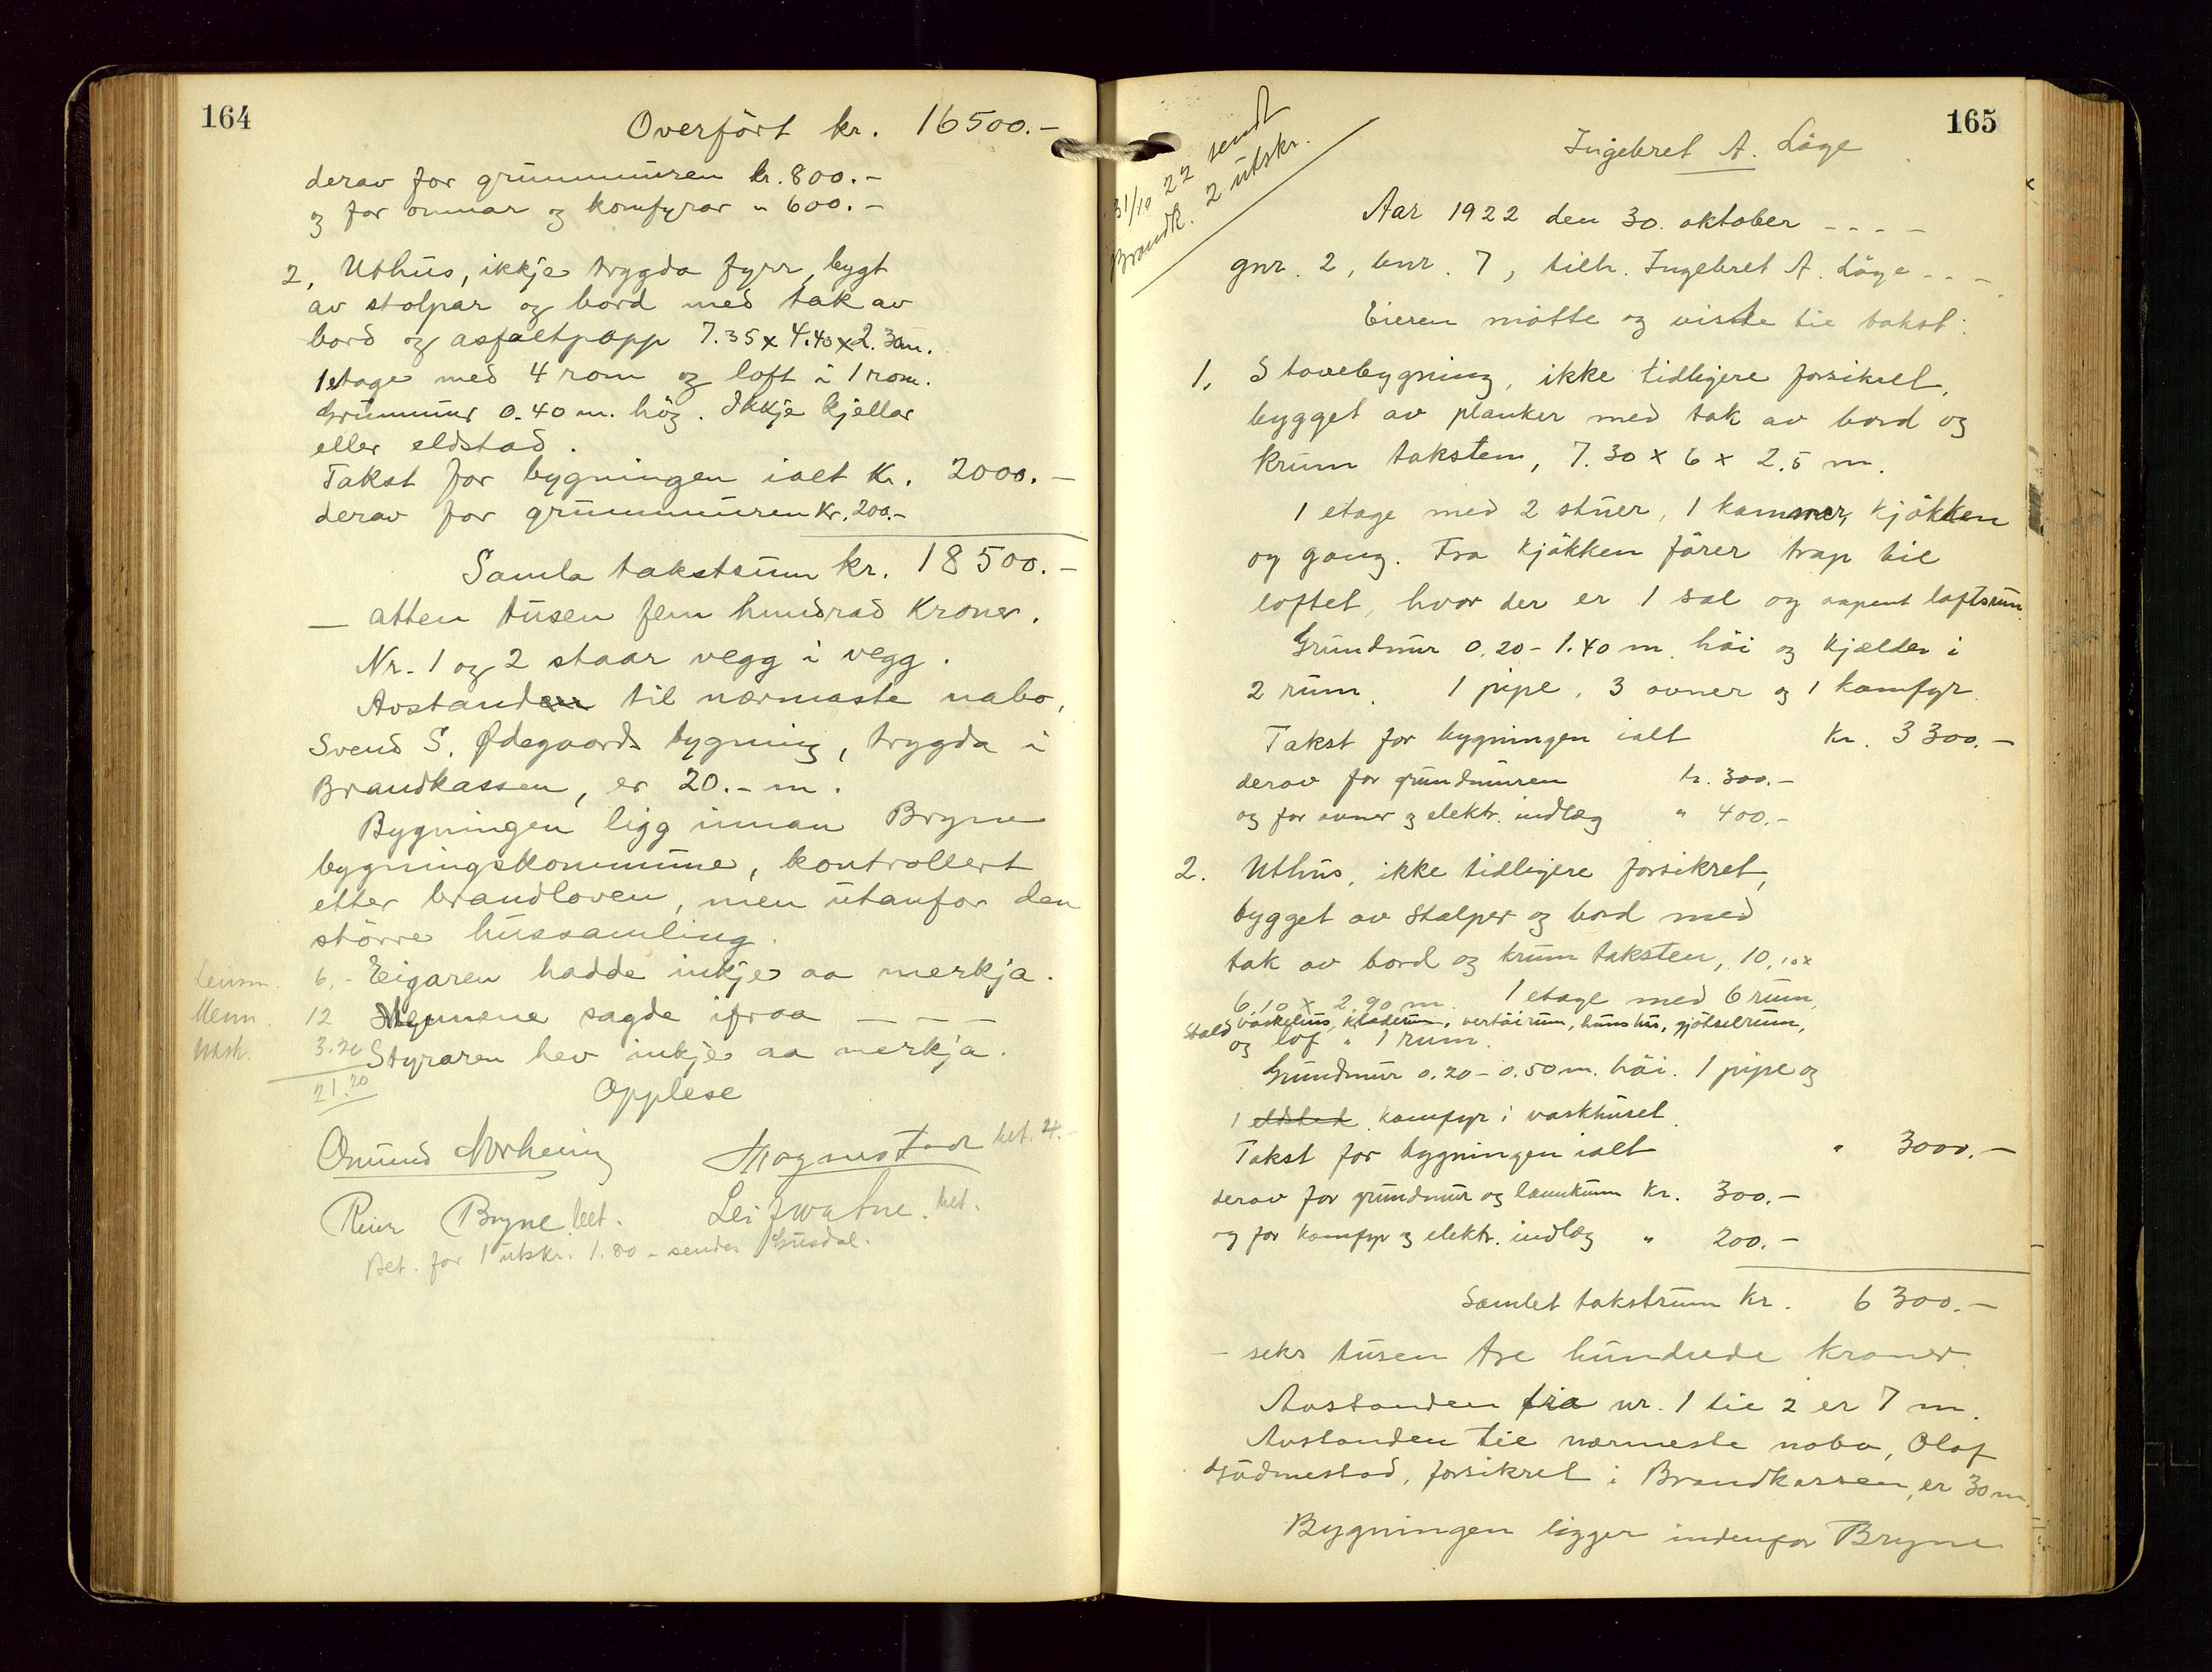 164
Overført kr. 16500.-
derav for grunnmuren kr. 800.-
og for omnar og komfyrar " 600.-
2, Uthus, ikkje trygda fyrr, bygt
av stolpar og bord med tak av
bord og asfaltpapp 7.35 x 4.40 x 2.30 m.
1 etage med 4 rom og loft i 1 rom.
Grunnmur 0.40 m. høg. Ikkje kjellar
eller eldstad.
Takst for bygningen ialt Kr. 2000.-
derav for grunnmuren Kr. 200.-
Samla takstsum kr. 18500.-
- atten tusen fem hundrad Kroner.
Nr. 1 og 2 staar vegg i vegg.
Avstanden til nærmaste nabo,
Svend S. Ødegaards bygning, trygda i
Brandkassen, er 20.- m.
Bygningen ligg innan Bryne
bygningskommune, kontrollert
etter brandloven, men utanfor den
større hussamling.
Lensm. 6.- Eigaren hadde inkje aa merkja.
Menn 12 Mennene sagde ifraa - - -
Utsk. 3.20 Styraren hev inkje aa merkja.
21.20
Opplese
Omund Norheim
bet. 4.-
Reier Bryne bet. Leif Watne. bet.
Bet. for 1 utskr. 1.80 - sendes Gusdal.
165
31/10 22 sendt
Brandk. 2 utskr.
Ingebret A. Løge
Aar 1922 den 30. oktober - - - -
gnr. 2, bnr. 7, tilh. Ingebret A. Løge - - -
Eieren møtte og viste til takst:
1. Stovebygning, ikke tidligere forsikret,
bygget av planker med tak av bord og
krum taksten, 7.30 x 6 x 2.5 m.
1 etage med 2 stuer, 1 kammer, kjøkken
og gang. Fra kjøkken fører trap til
loftet, hvor der er 1 sal og aapent loftsrum.
Grundmur 0.20 - 1.40 m. høi og kjælder i
2 rum. 1 pipe, 3 ovner og 1 komfyr.
Takst for bygningen ialt Kr. 3300.-
derav for grundmuren kr. 300.-
og for ovner og elektr. indlæg " 400.-
2. Uthus, ikke tidligere forsikret,
bygget av stolper og bord med
tak av bord og krum taksten, 10.10 x
6.10 x 2.90 m. 1 etage med 6 rum,
stald, vaskehus, klæderum, vertøirum, hønshus, gjødselrum,
og lof " 1 rum.
Grundmur 0.20 - 0.50 m. høi. 1 pipe og
1 eldsted komfyr i vaskhuset.
Takst for bygningen ialt " 3000.-
derav for grundmur og Kr. 300.-
og for komfyr og elektr. indlæg " 200.-
Samlet takstsum Kr. 6300.-
- seks tusen tre hundrede kroner.
Avstanden fra nr. 1 til 2 er 7 m.
Avstanden til nærmeste nabo, Olaf
Gudmestad, forsikret i Brandkassen, er 30 m.
Bygningen ligger indenfor Bryne